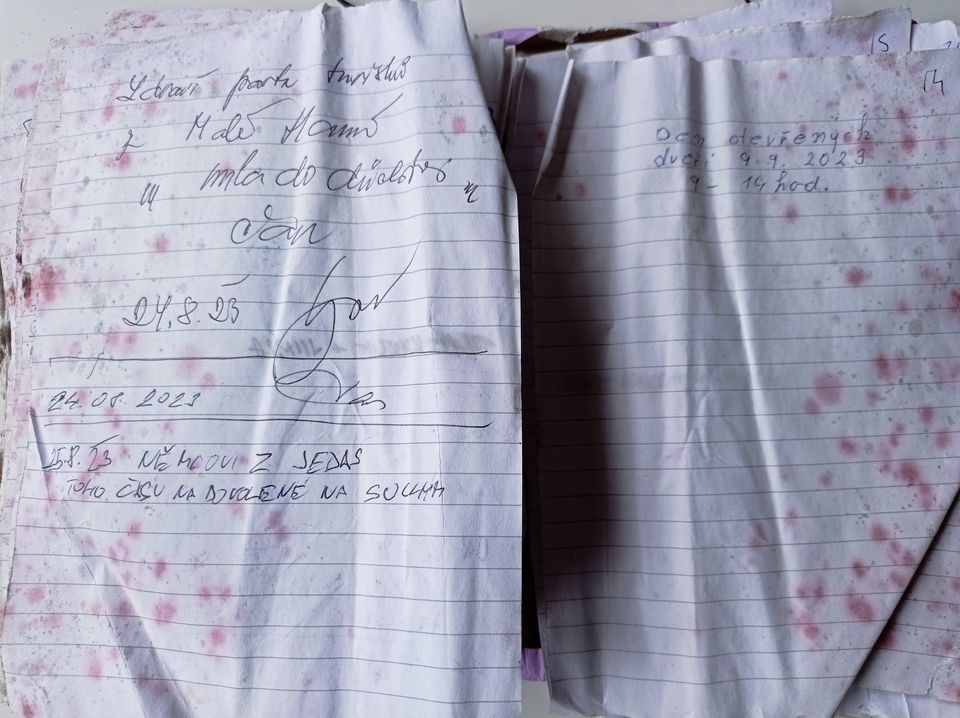 Zdraví parta turistů
z Malé Hané
"mlado důchodců"
Jan
24.8.23
24.08.2023
25.8.23 NĚMCOVI Z
TOHO ČASU NA DOVOLENÉ NA
15
14
Den otevřených
dveří 9.9.2023
9 - 14 hod.